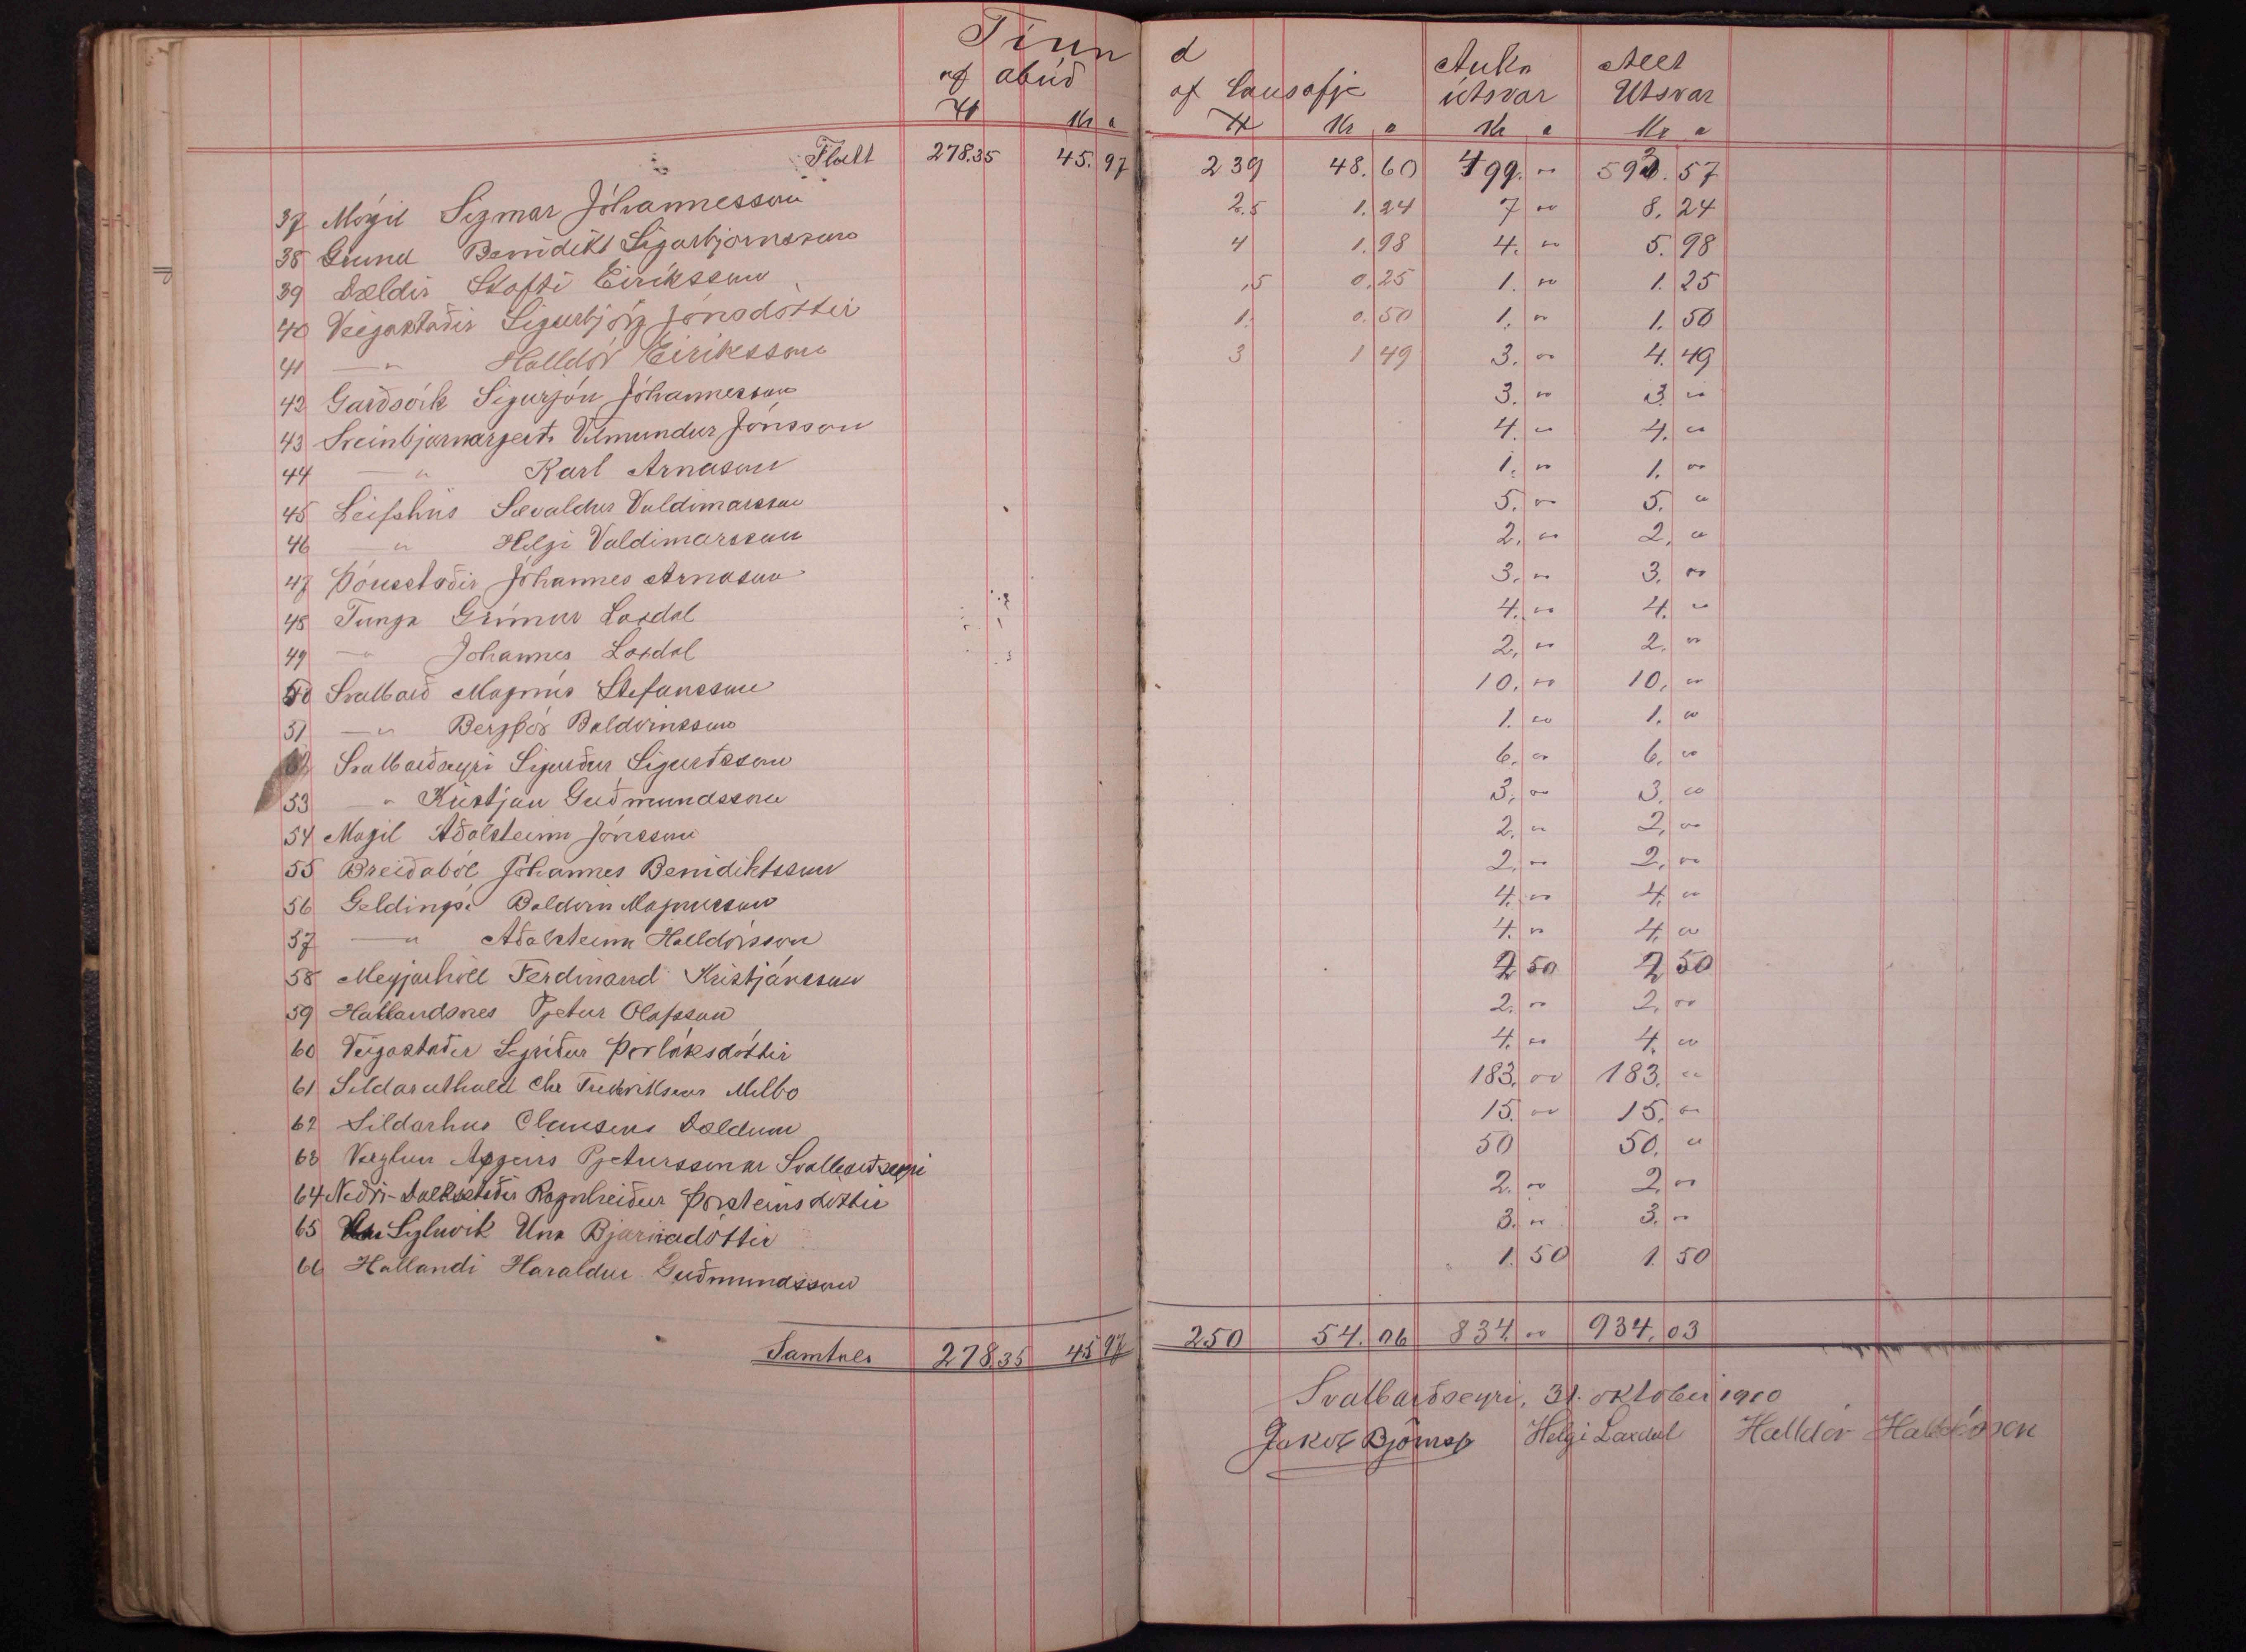 Tíund
af ábúð af Lausafje Auka útsvar Allt Útsvar
H Kr a H Kr a Kr a Kr a
Flutt 278.35 45.97 239 48.60 499." 593.57
37 Mógil Sigmar Jóhannesson 2.5 1.24 7 " 8.24
38 Grund Benidikt Sigurbjornsson 4 1.98 4. " 5.98
39 Dældir Skafti Eiríksson ,5 0.25 1. " 1.25
40 Veigastaðir Sigurbjörg Jónsdóttir 1. 0.50 1. " 1.50
41 — " Halldór Eiriksson 3 1 49 3. " 4.49
42 Garðsvík Sigurjón Jóhannesson 3. " 3. "
43 Sveinbjarnargerði Vilmundur Jónsson 4. " 4. "
44 — " Karl Arnason 1. " 1. "
45 Leifshús Sævaldur Valdimarsson 5. " 5. "
46 — " Helgi Valdimarsson 2, " 2, "
47 Þórisstaðir Jóhannes Arnason 3, " 3. "
48 Tunga Grímur Laxdal 4. " 4. "
49 — " Jóhannes Laxdal 2, " 2. "
50 Svalbarð Magnús Stefansson 10. " 10, "
51 — " Bergþór Baldvinsson 1. " 1. "
52 Svalbarðseyri Sigurður Sigurðsson 6. " 6. "
53 — " Kristján Guðmundsson 3, " 3. "
54 Mógil Aðalsteinn Jónsson 2. " 2, "
55 Breiðaból Jóhannes Benidiktsson 2, " 2, "
56 Geldingsá Baldvin Magnusson 4. " 4. "
57 — " Aðalsteinn Halldórsson 4. " 4, "
58 Meyjarhóll Ferdinand Kristjánsson 2 50 2 50
59 Hallandsnes Pjetur Olafsson 2. " 2, "
60 Veigastaðir Sigríður Þorláksdóttir 4. " 4. "
61 Síldaruthald Chr Fredriksens Melbo 183. " 183. "
62 Sildarhus Clausens Dældum 15. " 15. "
63 Verzlun Asgeirs Pjeturssonar Svalbarðseyri 50 50. "
64 Neðri-Dálksstaðir Ragnheiður Þorsteinsdóttir 2. " 2, "
65 Sigluvík Una Bjarnadóttir 3. " 3. "
66 Hallandi Haraldur Guðmundsson 1. 50 1. 50
Samtals 278,35 45 97 250 54.06 834. " 934,03
Svalbarðseyri, 31. oktober 1910
Jakob Björnsso Helgi Laxdal Halldór Halldórsson